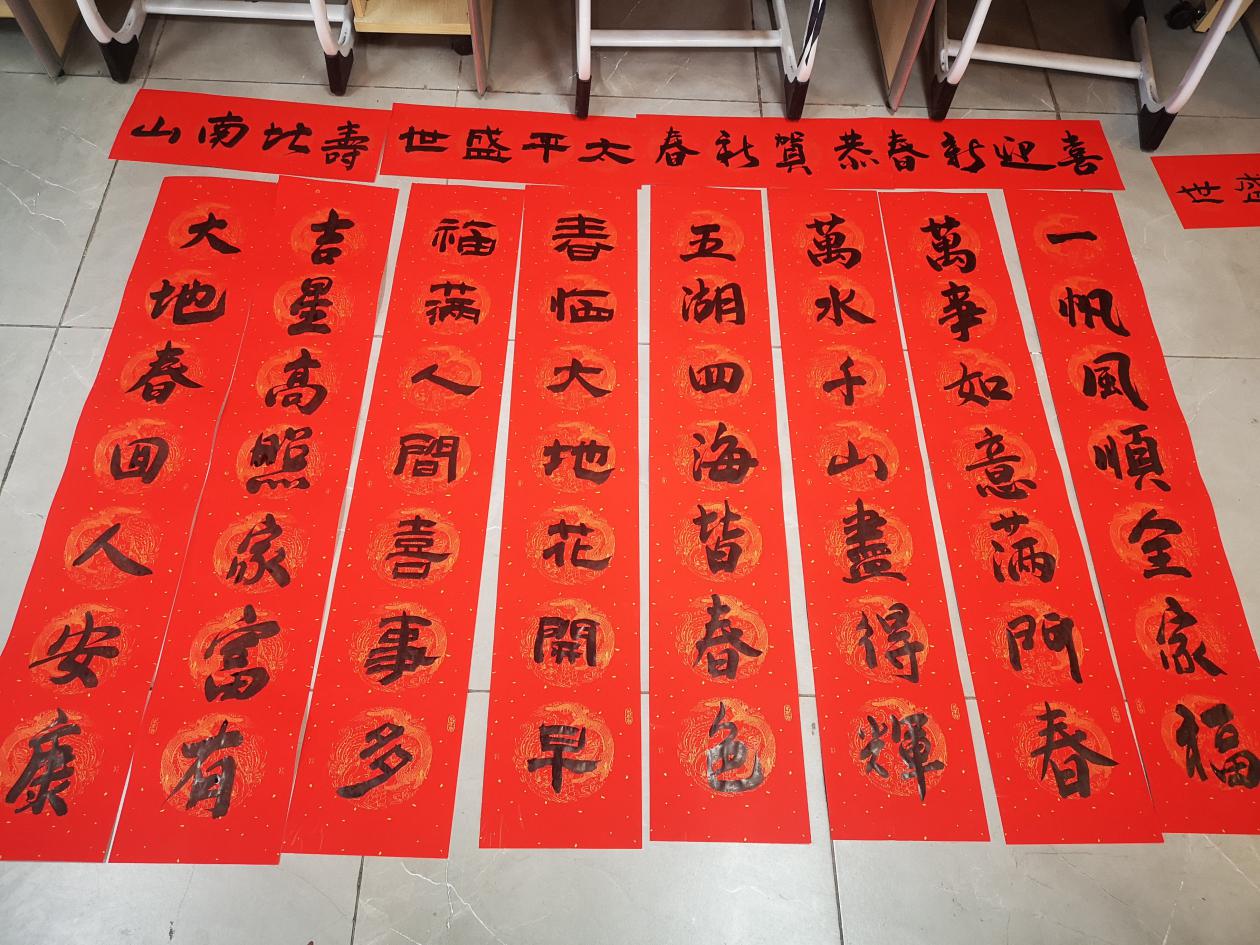 喜迎新春
恭賀新春
太平盛世
壽比南山
一帆風順全家福
萬事如意满門春
萬水千山盡得輝
五湖四海皆春色
春临大地花開早
福满人間喜事多
吉星高照家富有
大地春回人安康
世